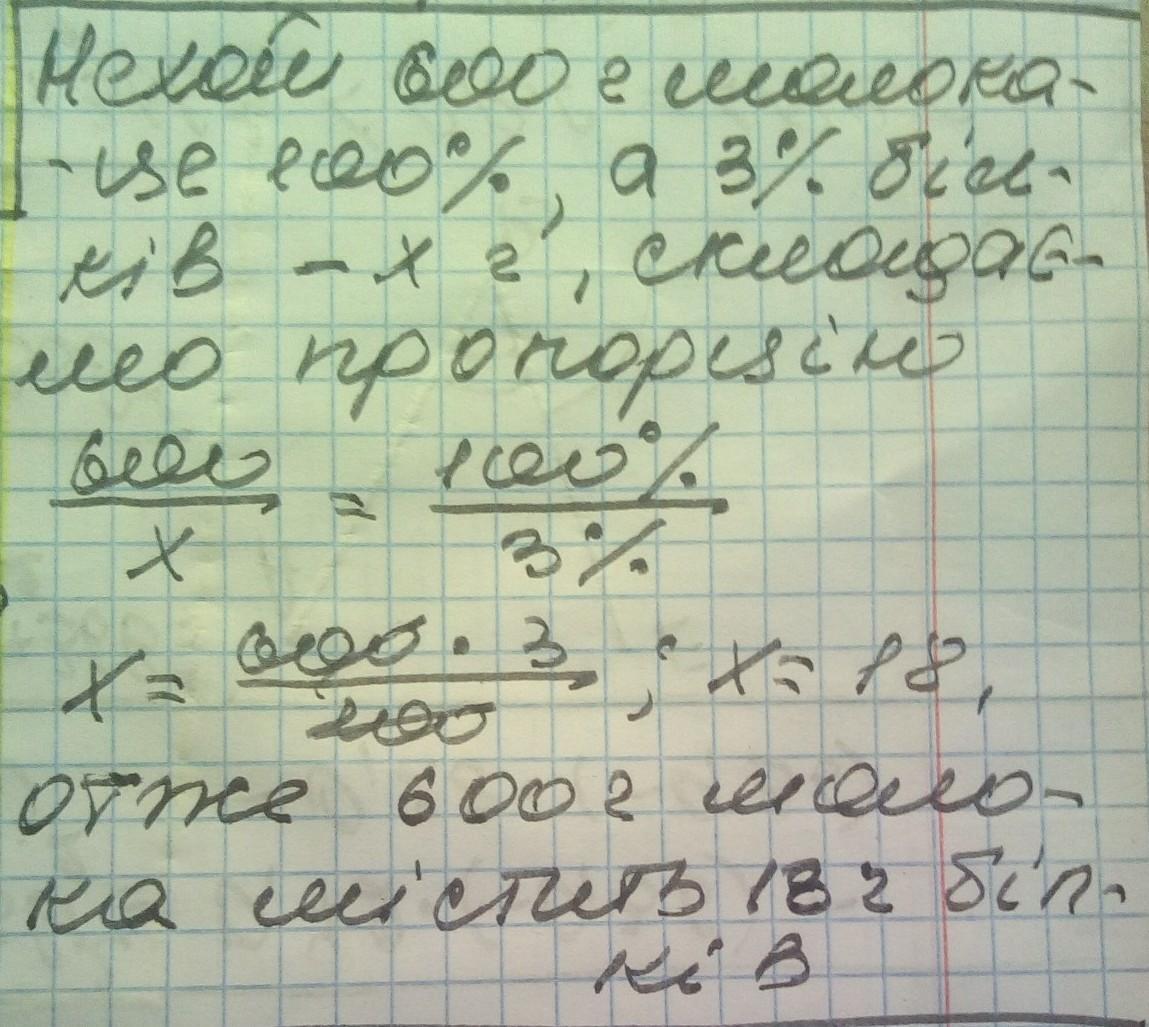 Нехай 600 г молока-
- це 100%, а 3% біл-
ків - х г, складає-
мо пропорцію
600/х = 100%/3%
х = 600 · 3/100 ; х = 18,
отже 600 г моло-
ка містить 18 г біл-
ків